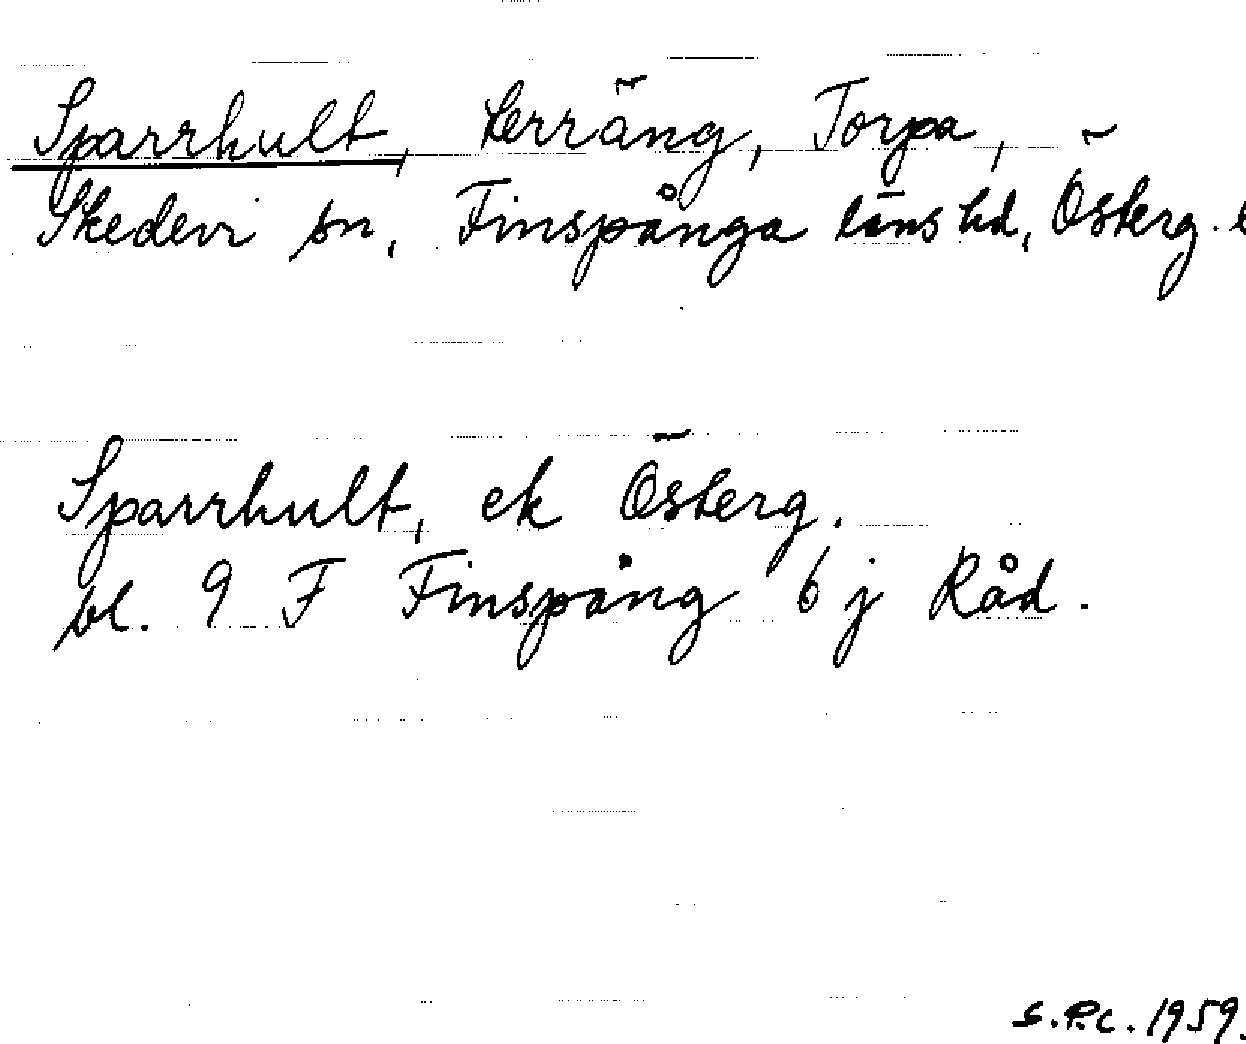 Sparrhult, terräng, Torpa,
Skedevi sn, Finspånga läns hd, Österg. l
Sparrhult, ek Österg.
bl. 9 F Finspång 6 j Råd.
S.P.C. 1959.